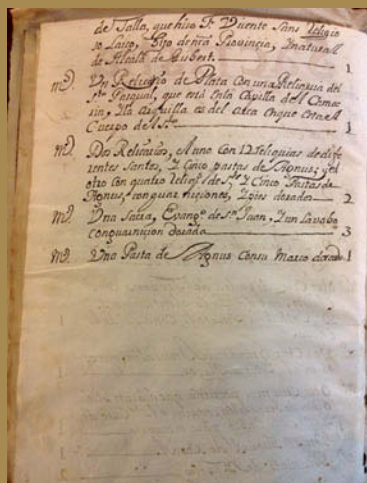 de Talla, que hizo Fr. Vicente Sans Religio
so Laico, hijo de nra Provincia, y natural
de Alcalà de Gisbert. 1
mô. Un Relicario de Plata con una Reliquia del
Sto. Pasqual, que està en la Capilla del Cama
rin, y la arquilla es del arca en que està el
Cuerpo del Sto. 1
mô. Dos Relicarios, el uno con 12 Reliquias de dife
rentes Santos, y Cinco pastas de Agnus; y el
otro con quatro Reliqs. de Sts. y Cinco Pastas de
Agnus, con guarniciones, y pies dorados 2
mô. Una Sacra, Evango. de Sn. Juan, y un Lavabo
con guarnicion dorada 3
mô. Una Pasta de Agnus con su Marco dorado 1